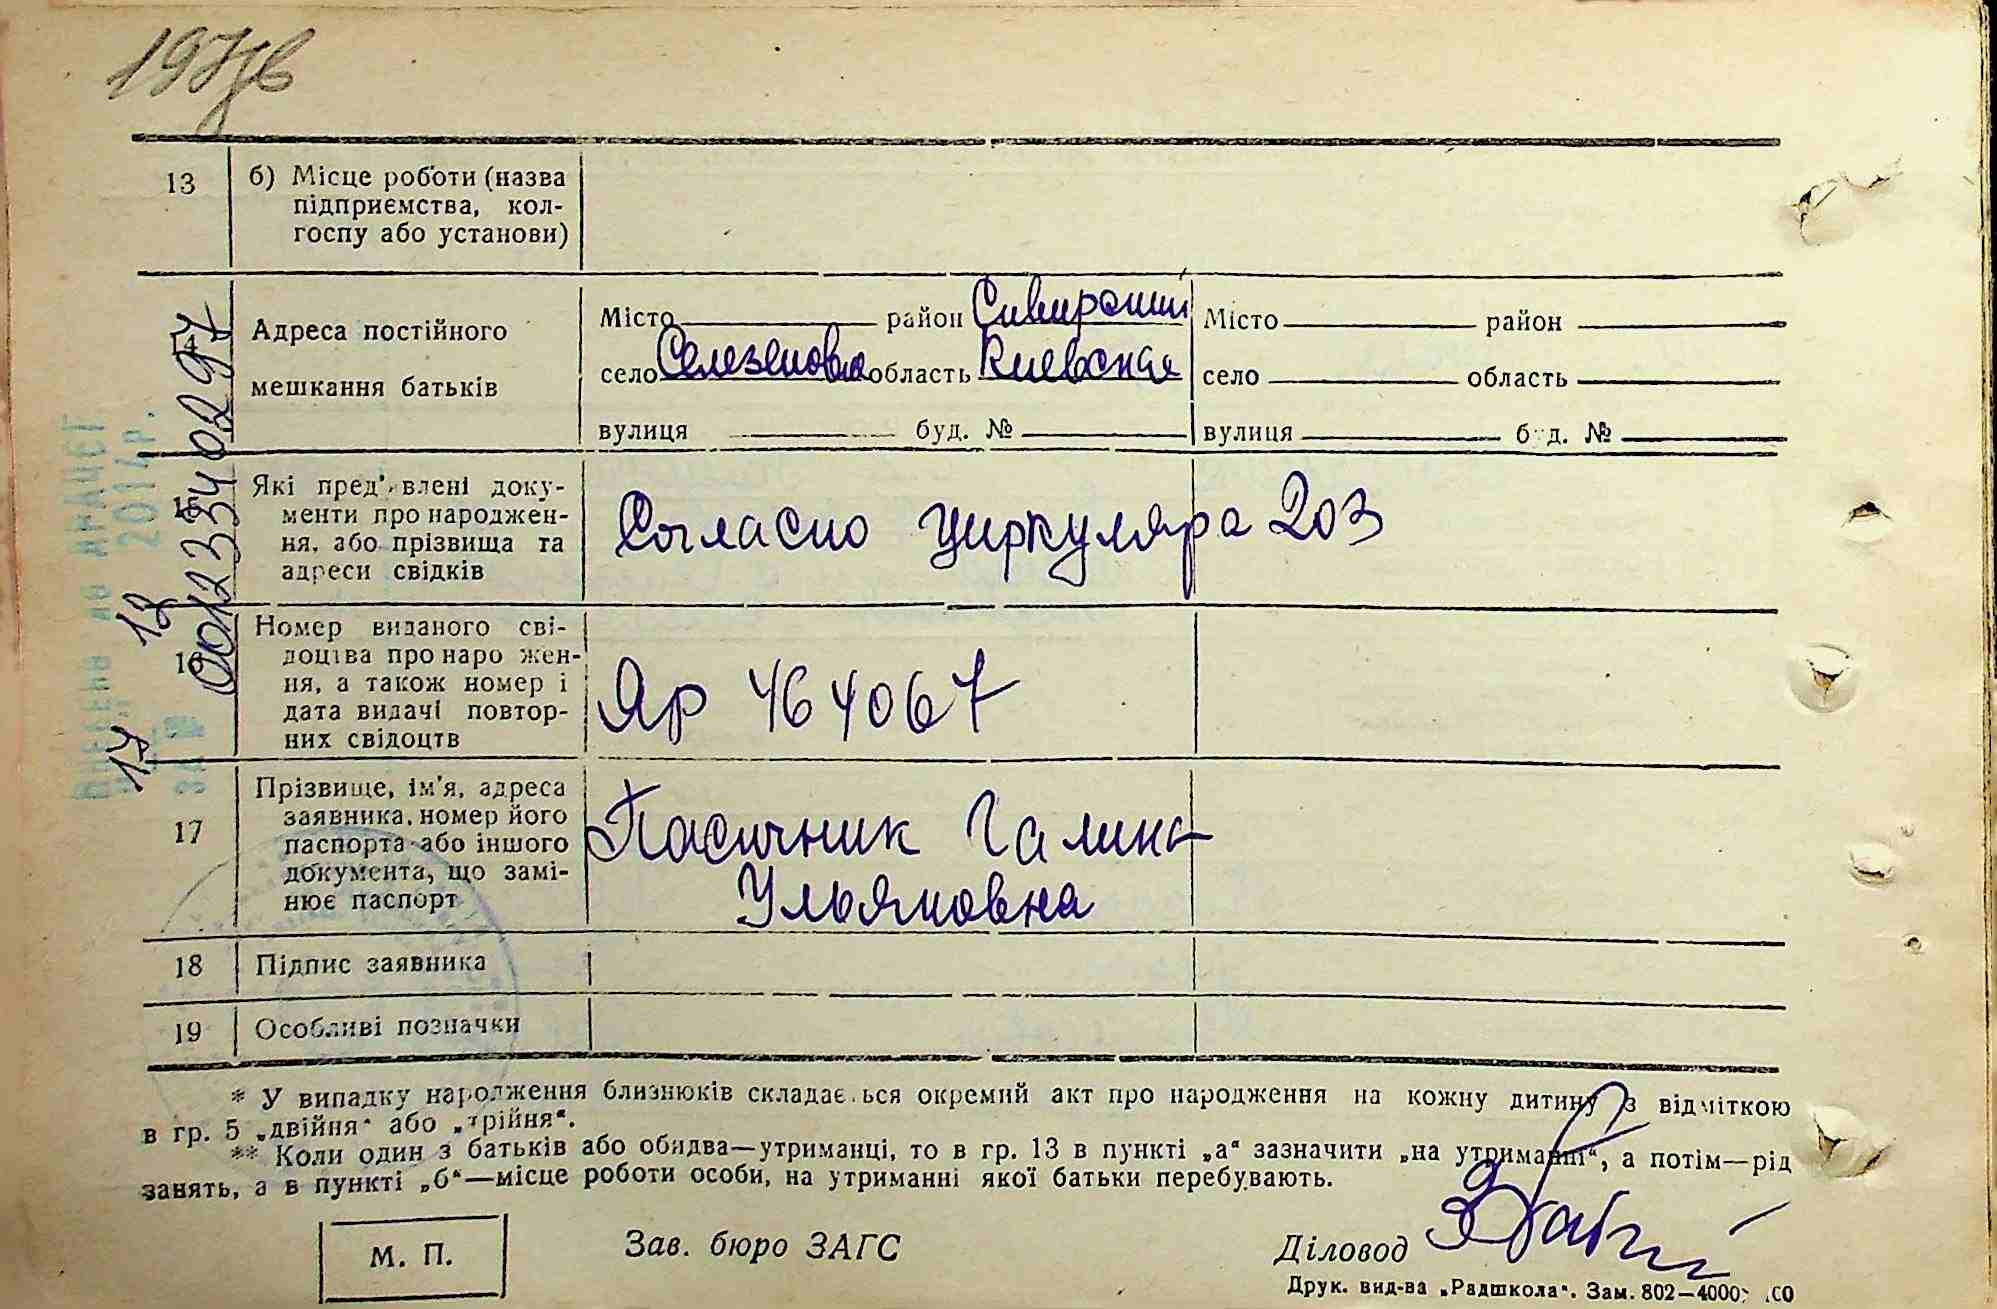 13
б) Місце роботи (назва
підприємства, кол-
госпу або установи)
14
Адреса постійного
мешкання батьків
Місто район Сквирский
село Селезеновка область Киевская
вулиця буд. №
Місто район
село область
вулиця буд. №
00123340297
15
Які пред'явлені доку-
менти про народжен-
ня, або прізвища та
адреси свідків
Согласно циркуляра 203
2014 р.
12
16
Номер виданого сві-
доцтва про народжен-
ня, а також номер і
дата видачі повтор-
них свідоцтв
Яр 464067
17
за №
17
Прізвище, ім'я, адреса
заявника, номер його
паспорта або іншого
документа, що замі-
нює паспорт
Пасичник Галина
Ульяновна
18
Підпис заявника
19
Особливі позначки
* У випадку народження близнюків складається окремий акт про народження на кожну дитину з відміткою
в гр. 5 „двійня“ або „трійня“.
** Коли один з батьків або обидва—утриманці, то в гр. 13 в пункті „а“ зазначити „на утриманні“, а потім—рід
занять, а в пункті „б“—місце роботи особи, на утриманні якої батьки перебувають.
М. П.
Зав. бюро ЗАГС
Діловод
Друк. вид-ва „Радшкола“. Зам. 802—4000